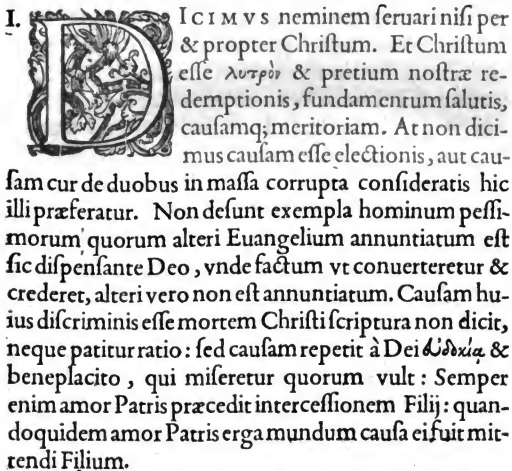 I. DICIMVS neminem ſeruari niſi per
& propter Chriſtum. Et Chriſtum
eſſe λυτρὸν & pretium noſtræ re-
demptionis, fundamentum ſalutis,
cauſamq; meritoriam. At non dici-
mus cauſam eſſe electionis, aut cau-
ſam cur de duobus in maſſa corrupta conſideratis hic
illi præferatur. Non deſunt exempla hominum peſſi-
morum quorum alteri Euangelium annuntiatum eſt
ſic diſpenſante Deo, vnde factum vt conuerteretur &
crederet, alteri vero non eſt annuntiatum. Cauſam hu-
ius diſcriminis eſſe mortem Chriſti ſcriptura non dicit,
neque patitur ratio: ſed cauſam repetit à Dei εὐδοκίᾳ &
beneplacito, qui miſeretur quorum vult: Semper
enim amor Patris præcedit interceſſionem Filij: quan-
doquidem amor Patris erga mundum cauſa ei fuit mit-
tendi Filium.